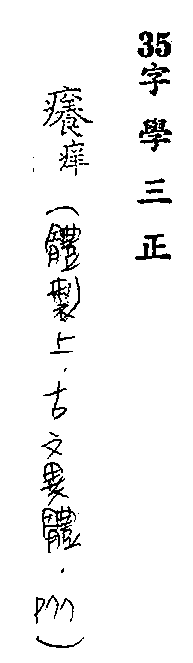 35字學三正
癢痒(體製上.古文異體.P77)